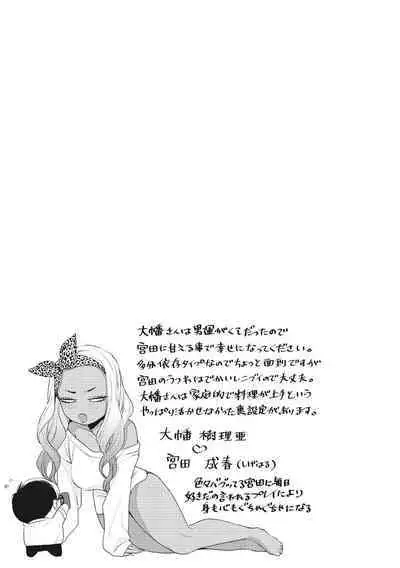 大幡さんは男運がくそだったので
宮田に甘える事で幸せになってください。
多分依存タイプなのでちょっと面倒ですが
宮田のうつわはでかいしニブイので大丈夫。
大幡さんは家庭的で料理が上手という
やっぱり活かせなかった裏設定があります。
大幡 樹理亜
♡
宮田 成春(しげはる)
色々バグってる宮田に毎日
好きだの言われるプレイにより
身も心もぐちゃぐちゃになる